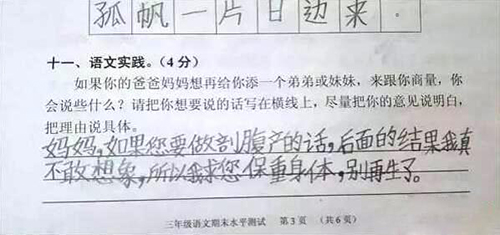 孤帆一片日边来.
十一、语文实践。(4分)
如果你的爸爸妈妈想再给你添一个弟弟或妹妹,来跟你商量,你
会说些什么?请把你想要说的话写在横线上,尽量把你的意见说明白,
把理由说具体。
妈妈,如果您要做剖腹产的话,后面的结果我真
不敢想象,所以我求您保重身体,别再生了。
三年级语文期末水平测试 第3页 (共6页)